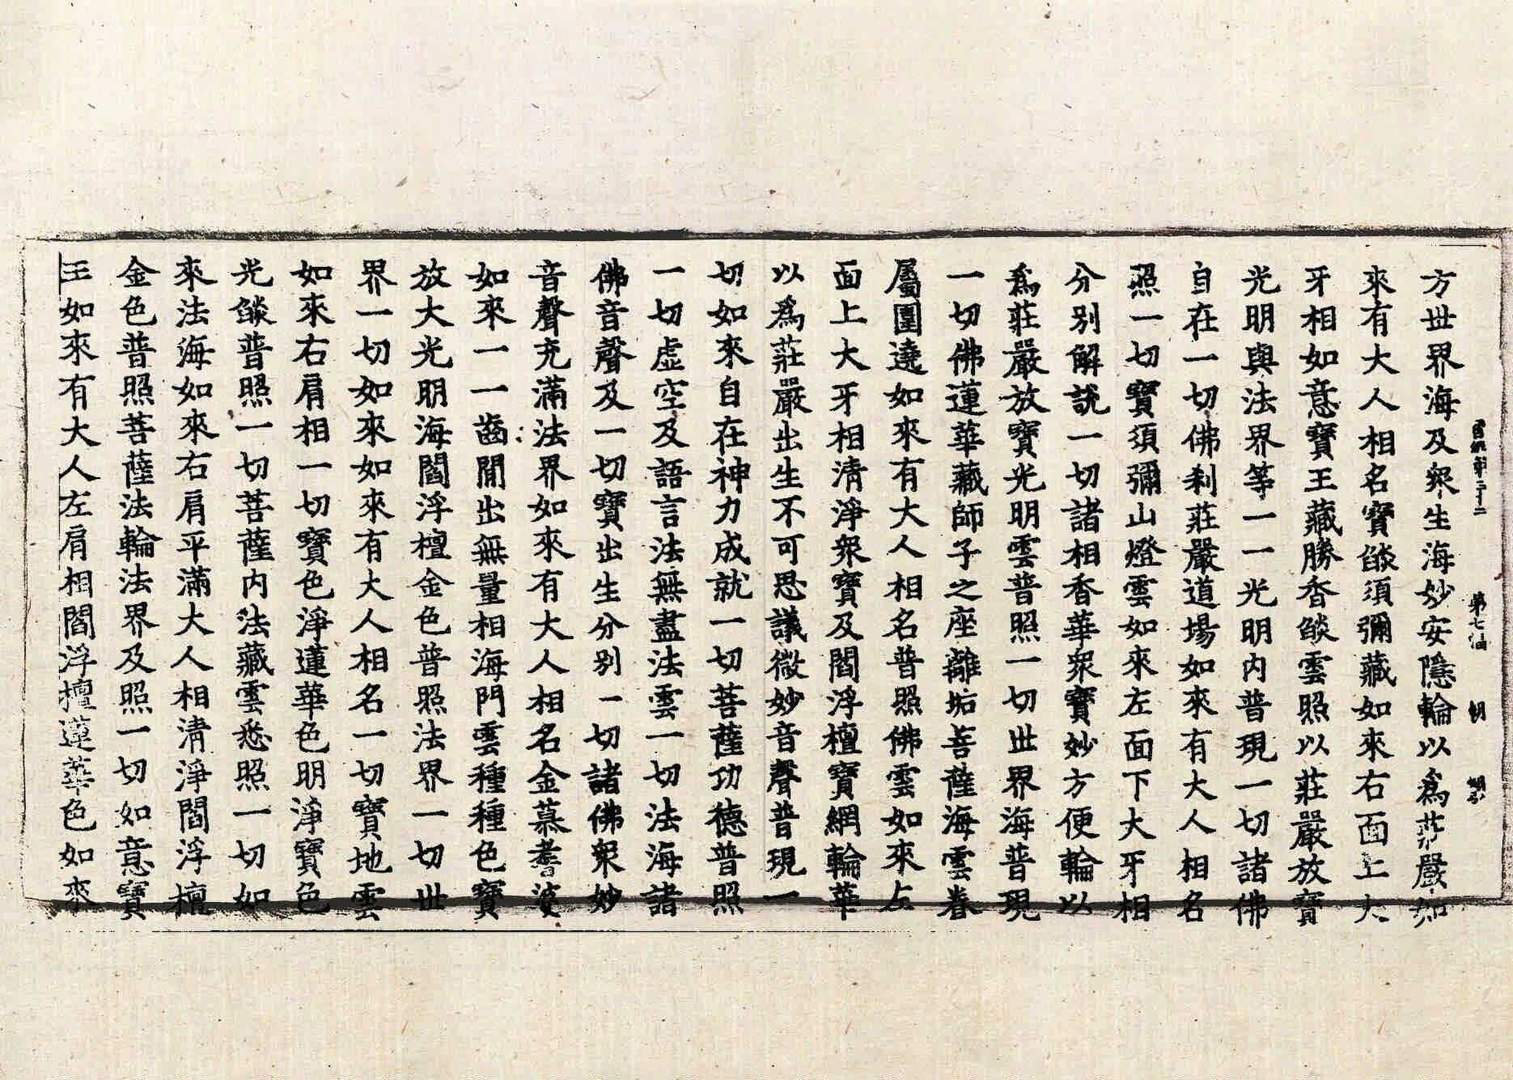 第七
方世界海及衆生海妙安隱輪以爲莊嚴如
來有大人相名寶燄須彌藏如來右面上大
牙相如意寶王藏勝香燄雲照以莊嚴放寶
光明與法界等一一光明内普現一切諸佛
自在一切佛刹莊嚴道場如來有大人相名
照一切寶須彌山燈雲如來左面下大牙相
分別解説一切諸相香華衆寶妙方便輪以
爲莊嚴放寶光明雲普照一切世界海普現
一切佛蓮華藏師子之座離垢菩薩海雲眷
屬圍遶如來有大人相名普照佛雲如來左
面上大牙相清淨衆寶及閻浮檀寶網輪華
以爲莊嚴出生不可思議微妙音聲普現一
切如來自在神力成就一切菩薩功德普照
一切虚空及語言法無盡法雲一切法海諸
佛音聲及一切寶出生分別一切諸佛衆妙
音聲充滿法界如來有大人相名金慕耆婆
如來一一齒間出無量相海門雲種種色寶
放大光明海閻浮檀金色普照法界一切世
界一切如來如來有大人相名一切寶地雲
如來右肩相一切寶色淨蓮華色明淨寶色
光燄普照一切菩薩内法藏雲悉照一切如
來法海如來右肩平滿大人相清淨閻浮檀
金色普照菩薩法輪法界及照一切如意寶
王如來有大人左肩相閻浮檀蓮華色如來